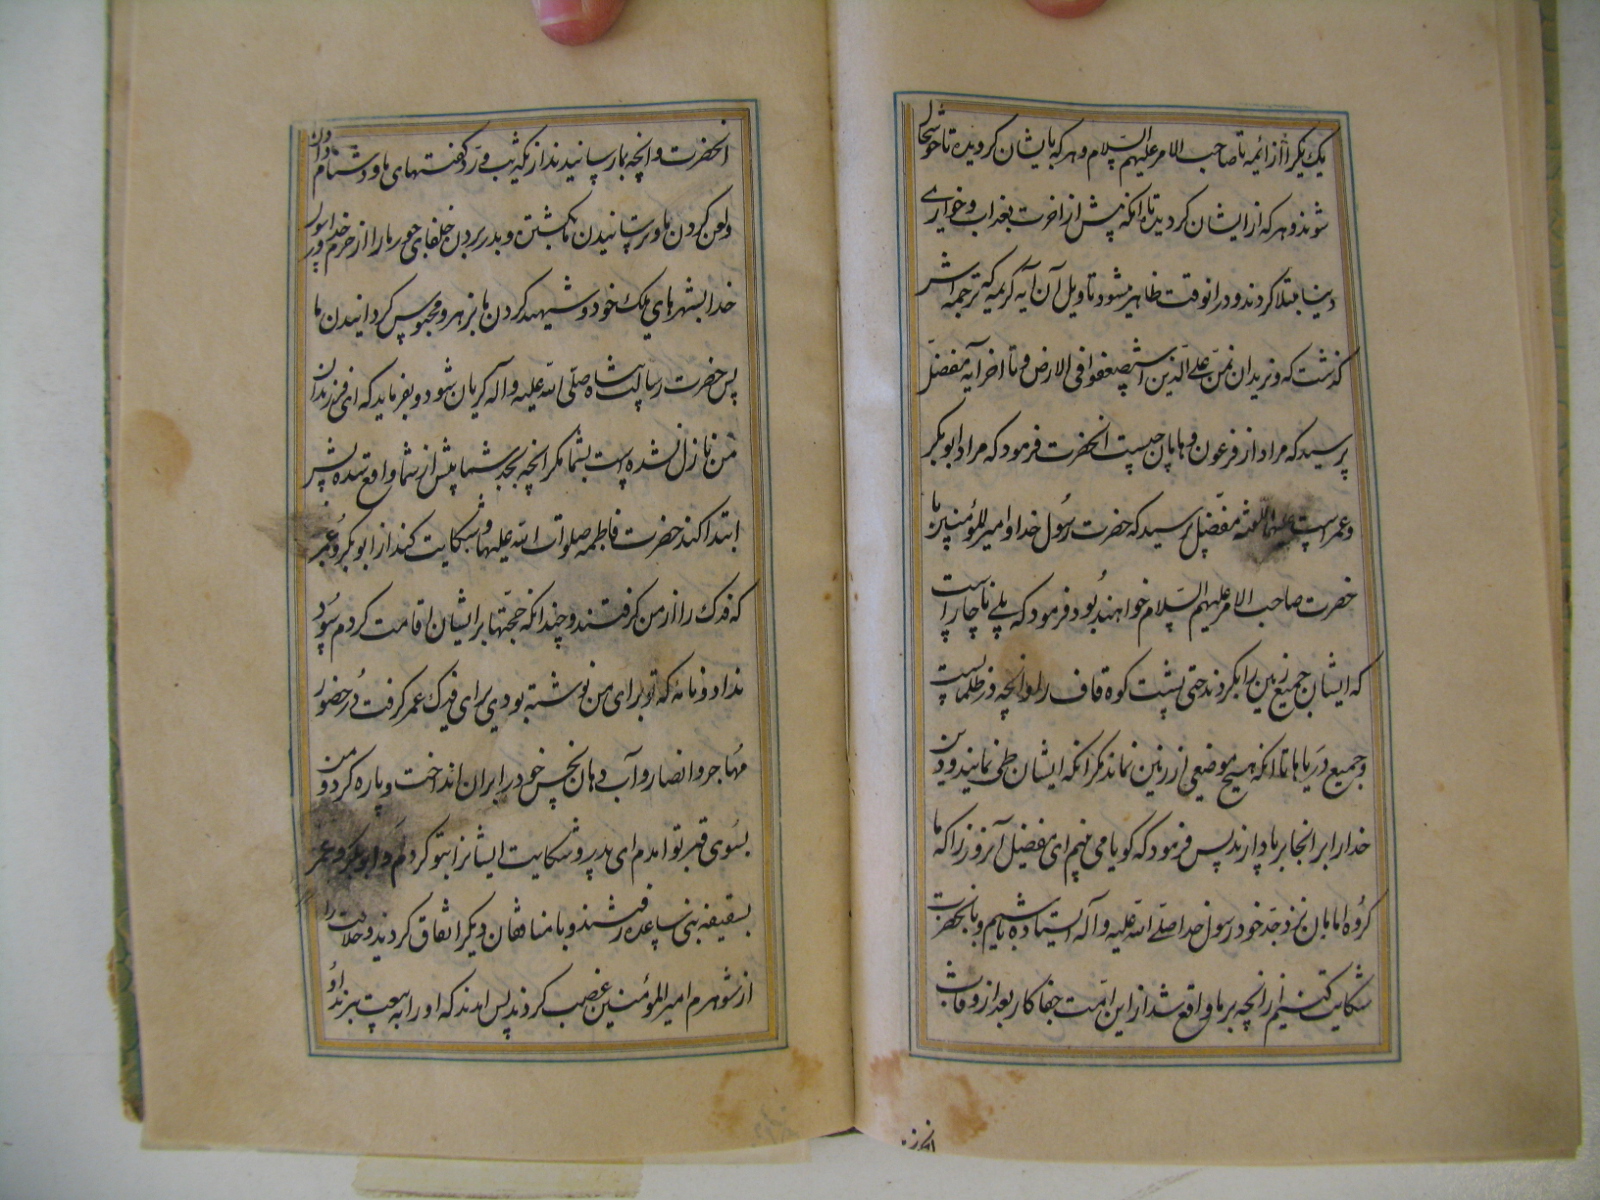 یک یک را از ائمه تا صاحب الامر علیهم السلام و هر که با ایشان گردیده تا خوشحال
شوند و هر که از ایشان گردیده تا آنکه پیش از اخرت بعذاب و خواری
دنیا مبتلا کردند و در انوقت ظاهر میشود تاویل آن آیه کریمه که ترجمه اش
گذشت که و نرید ان نمن علی الذین استضعفوا فی الارض و تا اخر آیه مفضل
پرسید که مراد از فرعون و هامان چیست انحضرت فرمود که مراد ابو بکر
و عمر است علیهما اللعنه مفضل پرسید که حضرت رسول خدا و امیر المؤمنین با
حضرت صاحب الامر علیهم السلام خواهند بود فرمود که بلی ناچار است
که ایشان جمیع زمین را بگردند حتی پشت کوه قاف را و انچه در ظلمات است
و جمیع دریاها تا آنکه هیچ موضعی از زمین نماند مگر انکه ایشان طی نمایند و دین
خدا را در انجا برپا دارند پس فرمود که گویا می بینم ای مفضل آنروز را که ما
گروه امامان نزد جد خود رسول خدا صلی الله علیه و آله ایستاده باشیم و بانحضرت
شکایت کنیم از انچه بر ما واقع شد از این امت جفا کار بعد از وفات
انحضرت
انحضرت و انچه بما رسانیدند از تکذیب و رد گفتهای ما و دشنام دادن
و لعن کردن ما و ترسانیدن ما بکشتن و بدر بردن خلفای جور ما را از حرم خدا و رسول
خدا بشهرهای ملک خود و شهید کردن ما بزهر و محبوس گردانیدن ما
پس حضرت رسالت پناه صلی الله علیه و اله گریان شود و بفرماید که ای فرزندان
من نازل نشده است بشما مگر انچه بجد شما پیش از شما واقع شده پس
ابتدا کند حضرت فاطمه صلوات الله علیها و شکایت کند از ابو بکر و عمر
که فدک را از من گرفتند و چندانکه حجتها بر ایشان اقامت کردم سود
نداد و نامه که تو برای من نوشته بودی برای فدک عمر گرفت در حضور
مهاجر و انصار و آب دهان نجس خود را بران انداخت و پاره کرد و من
بسوی قبر تو امدم ای پدر و شکایت ایشانرا بتو کردم و ابو بکر و عمر
بسقیفه بنی ساعده رفتند و با منافقان دیگر اتفاق کردند و خلافت را
از شوهرم امیر المؤمنین غصب کردند پس امدند که او را به بیعت برند او